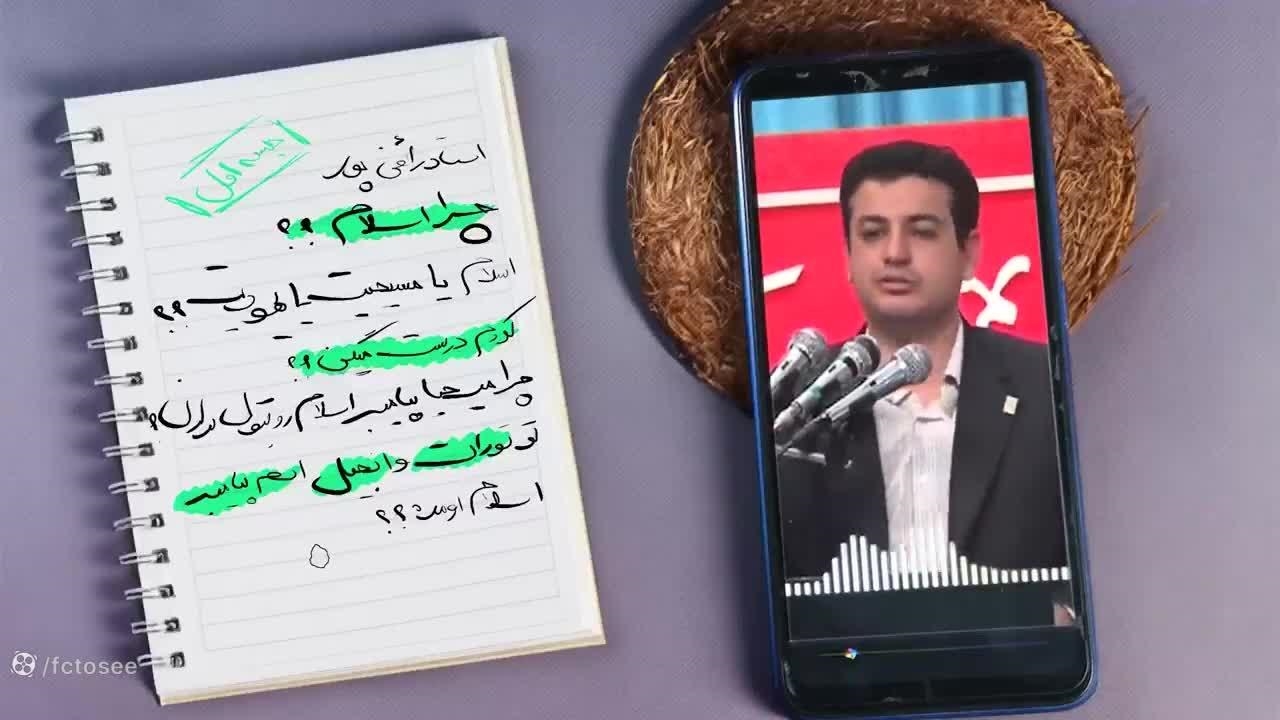 جلسه اول
استاد رائفی پور
چرا اسلام ؟؟
اسلام یا مسیحیت یا یهودیت ؟؟
کدوم درست میگن ؟؟
چرا مسیحیا پیامبر اسلام رو قبول ندارن؟
تو تورات و انجیل اسم پیامبر
اسلام اومده ؟؟
/fctosee